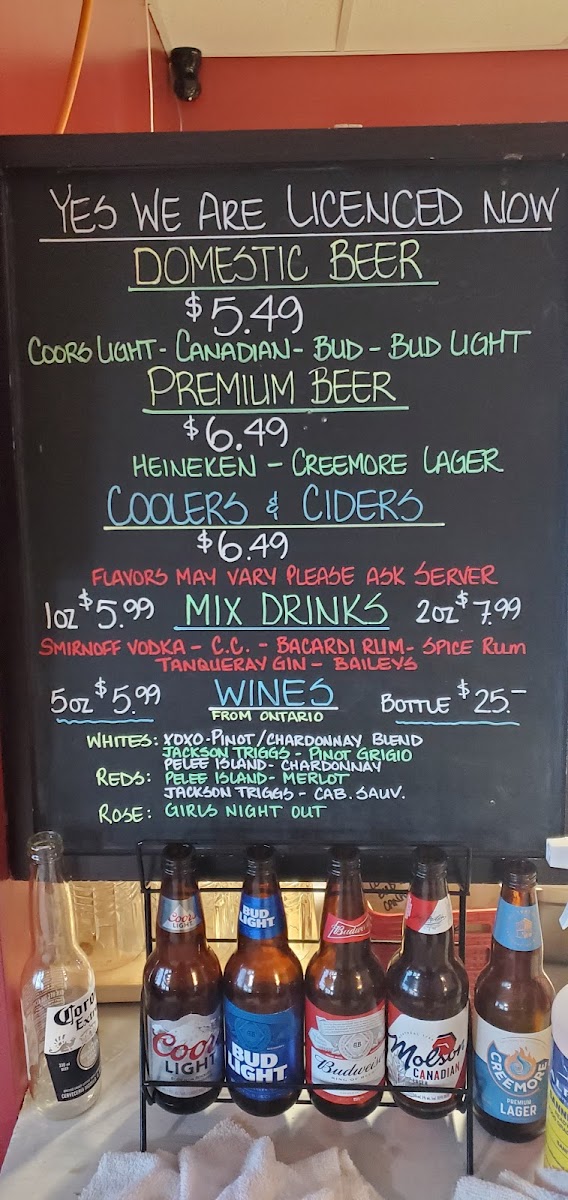 YES WE ARE LICENCED NOW
DOMESTIC BEER
$5.49
COORS LIGHT - CANADIAN - BUD - BUD LIGHT
PREMIUM BEER
$6.49
HEINEKEN - CREEMORE LAGER
COOLERS & CIDERS
$6.49
FLAVORS MAY VARY PLEASE ASK SERVER
1oz $5.99 MIX DRINKS 2oz $7.99
SMIRNOFF VODKA - C.C. - BACARDI RUM - SPICE RUM
TANQUERAY GIN - BAILEYS
5oz $5.99 WINES BOTTLE $25.-
FROM ONTARIO
WHITES: XOXO - PINOT/CHARDONNAY BLEND
JACKSON TRIGGS - PINOT GRIGIO
PELEE ISLAND - CHARDONNAY
REDS: PELEE ISLAND - MERLOT
JACKSON TRIGGS - CAB. SAUV.
ROSE: GIRLS NIGHT OUT
Coors
LIGHT
BUD
LIGHT
Budweiser
Corona
Extra
Coors
LIGHT
BUD
LIGHT
Budweiser
Molson
CANADIAN
CREEMORE
PREMIUM
LAGER